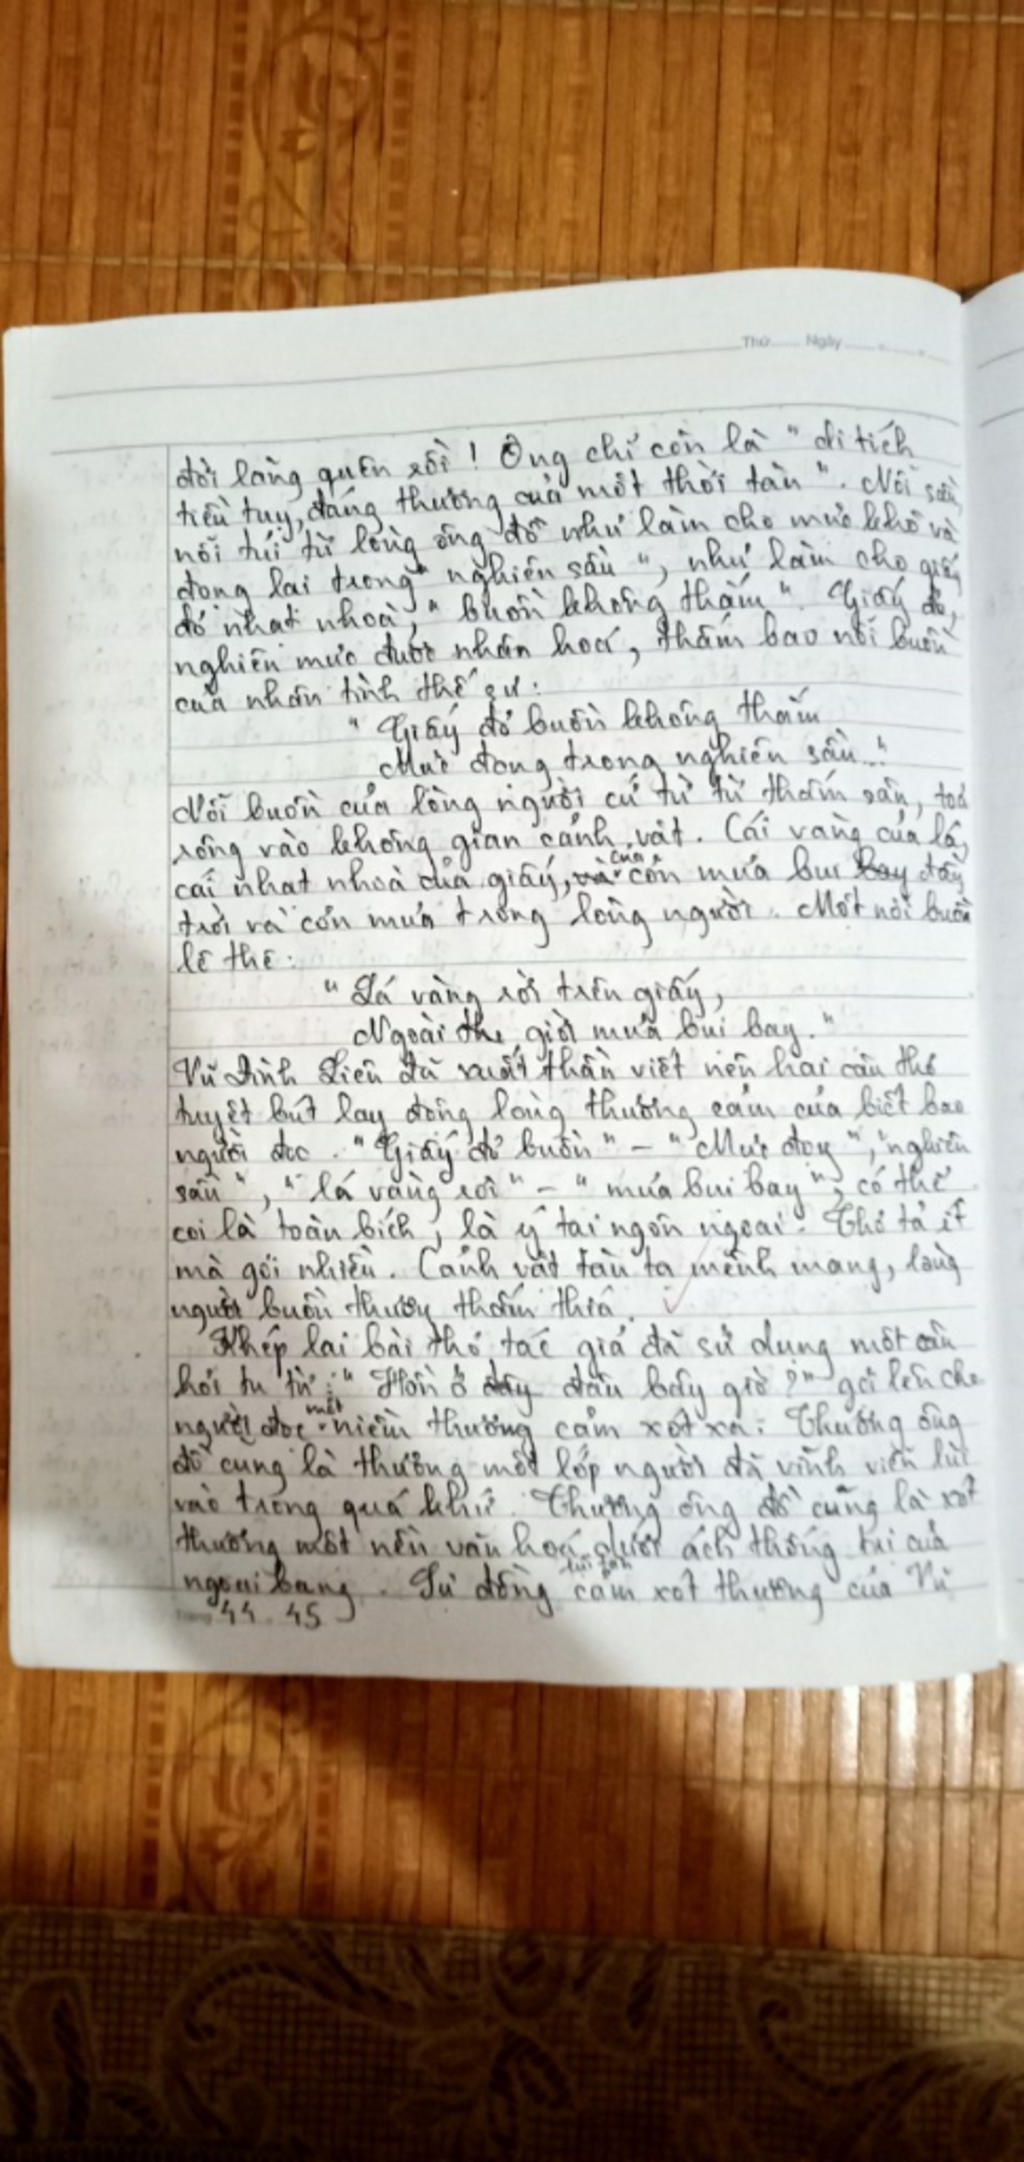 Thứ...... Ngày
đời lãng quên rồi! Ông chỉ còn là "di tích
tiều tuỵ, đáng thương của một thời tàn". Nỗi sầu
nỗi tủi từ lòng ông đồ như làm cho mực khô và
đọng lại trong "nghiên sầu", như làm cho giấy
đỏ nhạt nhoà, "buồn không thắm". Giấy đỏ,
nghiên mực được nhân hoá, thấm bao nỗi buồn
của nhân tình thế sự:
"Giấy đỏ buồn không thắm
Mực đọng trong nghiên sầu..."
Nỗi buồn của lòng người cứ từ từ thấm sâu, toả
rộng vào không gian cảnh vật. Cái vàng của lá,
cái nhạt nhoà của giấy, của cơn mưa bụi đầy
trời và cơn mưa trong lòng người. Một nỗi buồn
lê thê:
"Lá vàng rơi trên giấy,
Ngoài trời giời mưa bụi bay."
Vũ Đình Liên đã xuất thần viết nên hai câu thơ
tuyệt bút lay động lòng thương cảm của biết bao
người đọc. "Giấy đỏ buồn" - "Mực đọng", "nghiên
sầu", "lá vàng rơi" - "mưa bụi bay", có thể
coi là toàn bích, là ý tại ngôn ngoại. Thơ tả ít
mà gợi nhiều. Cảnh vật tàn tạ mênh mang, lòng
người buồn thương thấm thía.
Khép lại bài thơ tác giả đã sử dụng một câu
hỏi tu từ: "Hồn ở đâu bây giờ?" gợi lên cho
người đọc một niềm thương cảm xót xa: Thương ông
đồ cũng là thương một lớp người đã vĩnh viễn lùi
vào trong quá khứ. Thương ông đồ cũng là xót
thương một nền văn hoá lụi tàn dưới ách thống trị của
ngoại bang. Sự đồng cảm xót thương của Vũ
44 45